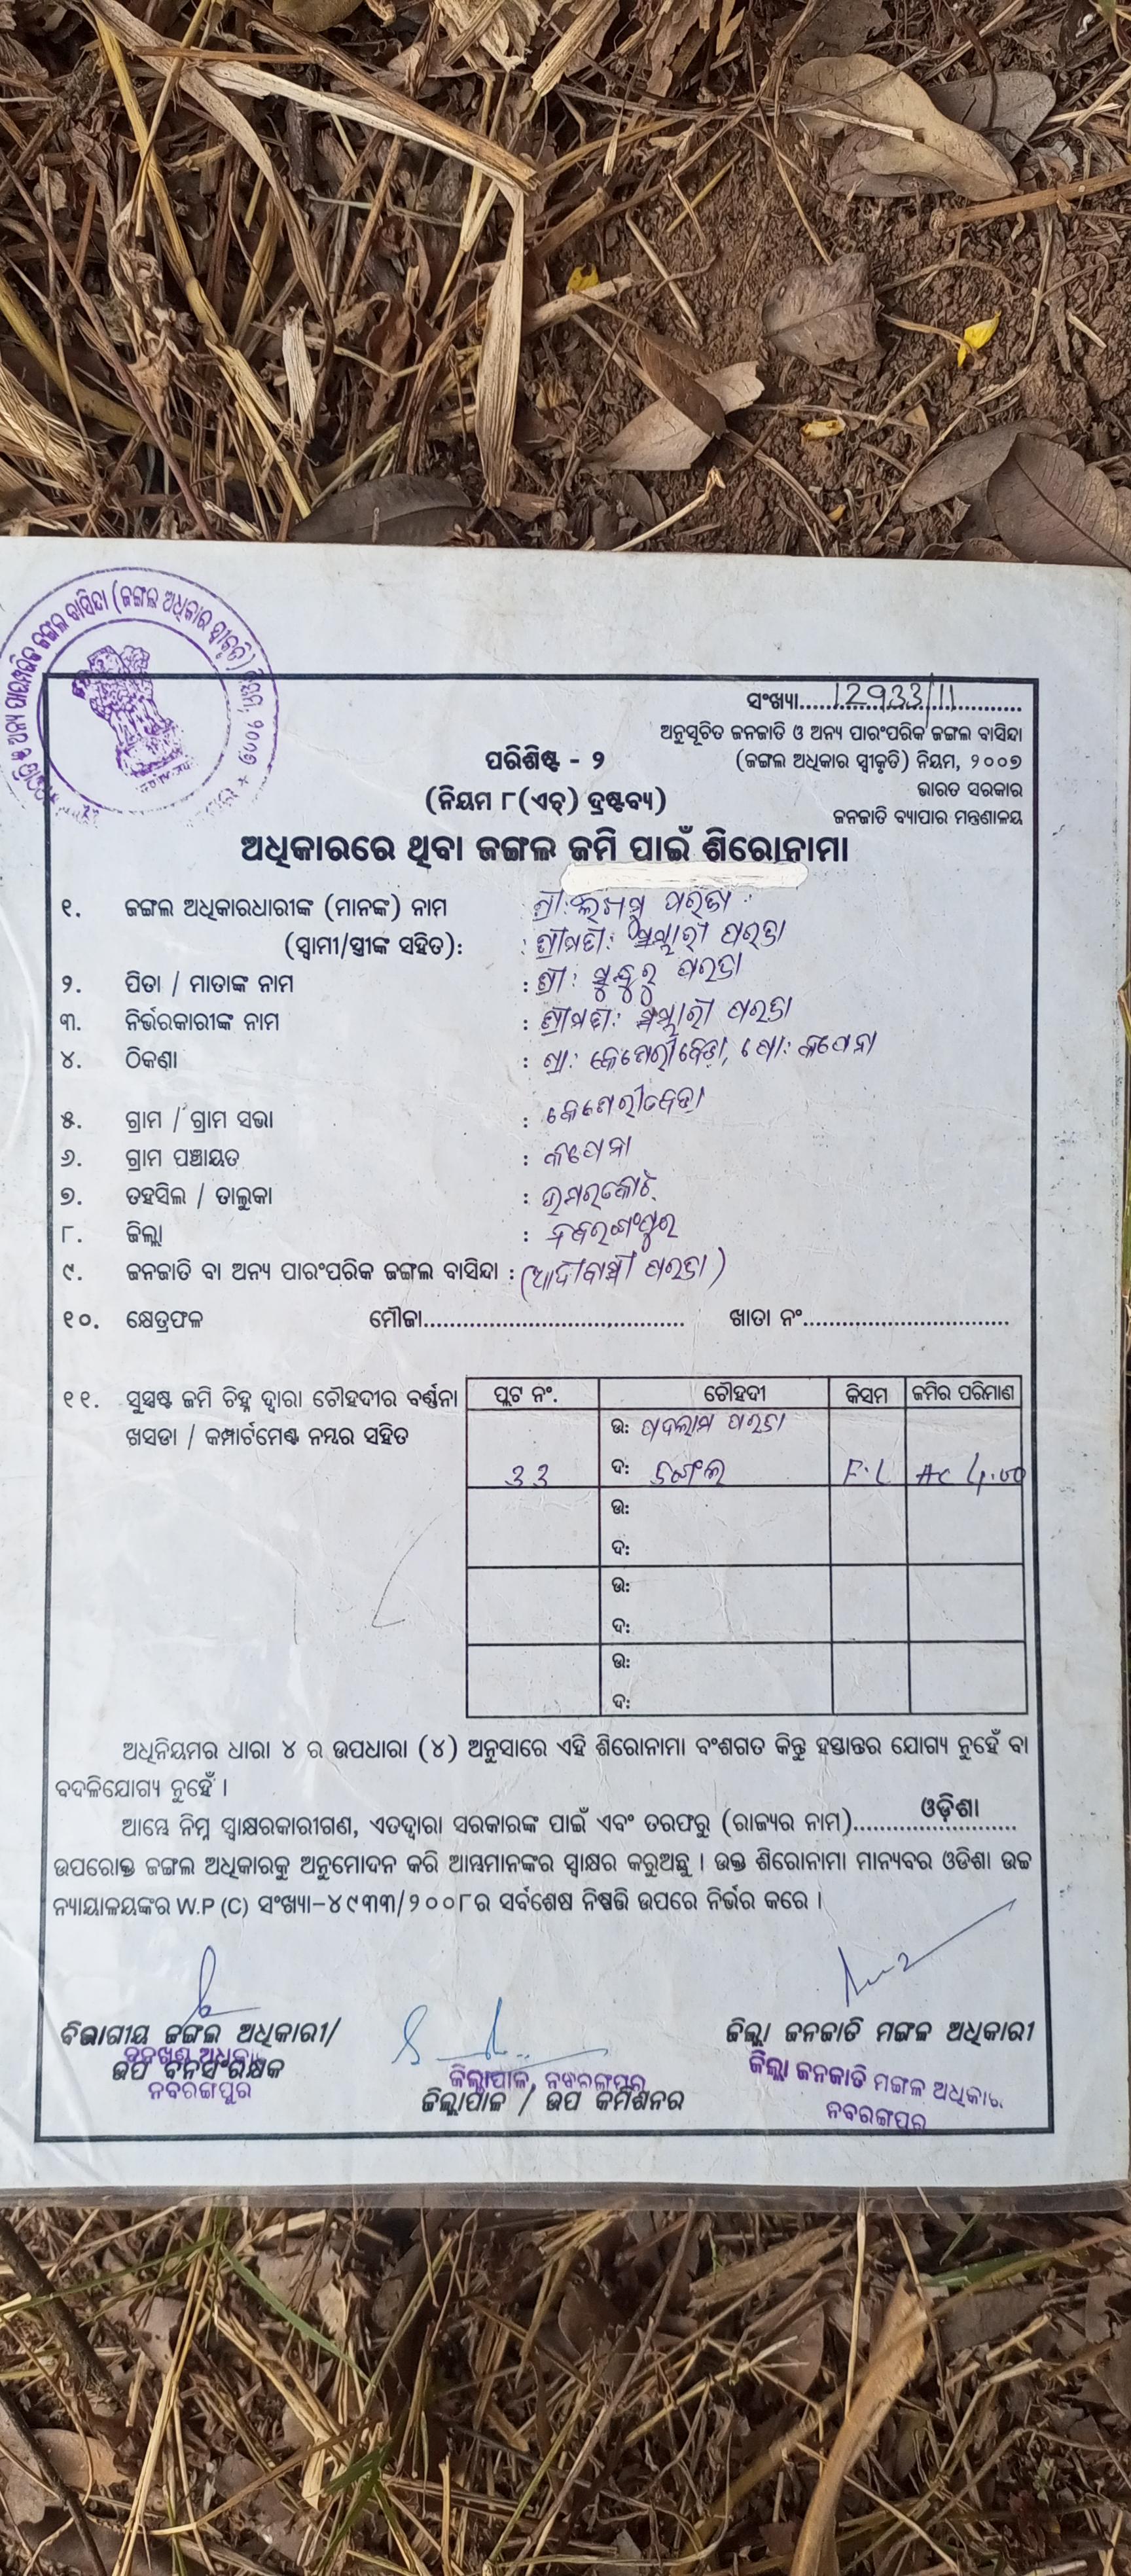 ଅନ୍ୟ ପାରମ୍ପରିକ ଜଙ୍ଗଲ ବାସିନ୍ଦା (ଜଙ୍ଗଲ ଅଧିକାର ସ୍ୱୀକୃତି) ନିୟମ, ୨୦୦୭
ସଂଖ୍ୟା....12933/11....
ଅନୁସୂଚିତ ଜନଜାତି ଓ ଅନ୍ୟ ପାରଂପରିକ ଜଙ୍ଗଲ ବାସିନ୍ଦା
(ଜଙ୍ଗଲ ଅଧିକାର ସ୍ୱୀକୃତି) ନିୟମ, ୨୦୦୭
ଭାରତ ସରକାର
ଜନଜାତି ବ୍ୟାପାର ମନ୍ତ୍ରଣାଳୟ
ପରିଶିଷ୍ଟ - ୨
(ନିୟମ ୮(ଏଚ୍) ଦ୍ରଷ୍ଟବ୍ୟ)
ଅଧିକାରରେ ଥିବା ଜଙ୍ଗଲ ଜମି ପାଇଁ ଶିରୋନାମା
୧. ଜଙ୍ଗଲ ଅଧିକାରଧାରୀଙ୍କ (ମାନଙ୍କ) ନାମ : ଶ୍ରୀ: ପରଜା
(ସ୍ୱାମୀ/ସ୍ତ୍ରୀଙ୍କ ସହିତ): : ଶ୍ରୀମତୀ: ପରଜା
୨. ପିତା / ମାତାଙ୍କ ନାମ : ଶ୍ରୀ: ପରଜା
୩. ନିର୍ଭରକାରୀଙ୍କ ନାମ : ଶ୍ରୀମତୀ: ପରଜା
୪. ଠିକଣା : ଗ୍ରା: କେଶେରୀବେଡା, ପୋ: କପେନା
୫. ଗ୍ରାମ / ଗ୍ରାମ ସଭା : କେଶେରୀବେଡା
୬. ଗ୍ରାମ ପଞ୍ଚାୟତ : କପେନା
୭. ତହସିଲ / ତାଲୁକା : ଉମରକୋଟ
୮. ଜିଲ୍ଲା : ନବରଂଗପୁର
୯. ଜନଜାତି ବା ଅନ୍ୟ ପାରଂପରିକ ଜଙ୍ଗଲ ବାସିନ୍ଦା : (ଆଦୀବାସୀ ପରଜା)
୧୦. କ୍ଷେତ୍ରଫଳ ମୌଜା........................................ ଖାତା ନଂ................................
୧୧. ସୁସ୍ପଷ୍ଟ ଜମି ଚିହ୍ନ ଦ୍ୱାରା ଚୌହଦୀର ବର୍ଣ୍ଣନା
ଖସଡା / କମ୍ପାର୍ଟମେଣ୍ଟ ନମ୍ବର ସହିତ
ପ୍ଲଟ ନଂ. ଚୌହଦୀ କିସମ ଜମିର ପରିମାଣ
ଉ: ପରଜା
33 ଦ: ଜଙ୍ଗଲ F.L Ac 4.00
ଉ:
ଦ:
ଉ:
ଦ:
ଉ:
ଦ:
ଅଧିନିୟମର ଧାରା ୪ ର ଉପଧାରା (୪) ଅନୁସାରେ ଏହି ଶିରୋନାମା ବଂଶଗତ କିନ୍ତୁ ହସ୍ତାନ୍ତର ଯୋଗ୍ୟ ନୁହେଁ ବା
ବଦଳିଯୋଗ୍ୟ ନୁହେଁ ।
ଆମ୍ଭେ ନିମ୍ନ ସ୍ୱାକ୍ଷରକାରୀଗଣ, ଏତଦ୍ୱାରା ସରକାରଙ୍କ ପାଇଁ ଏବଂ ତରଫରୁ (ରାଜ୍ୟର ନାମ)..........ଓଡ଼ିଶା..........
ଉପରୋକ୍ତ ଜଙ୍ଗଲ ଅଧିକାରକୁ ଅନୁମୋଦନ କରି ଆମ୍ଭମାନଙ୍କର ସ୍ୱାକ୍ଷର କରୁଅଛୁ । ଉକ୍ତ ଶିରୋନାମା ମାନ୍ୟବର ଓଡିଶା ଉଚ୍ଚ
ନ୍ୟାୟାଳୟଙ୍କର W.P (C) ସଂଖ୍ୟା-୪୯୩୩/୨୦୦୮ର ସର୍ବଶେଷ ନିଷ୍ପତ୍ତି ଉପରେ ନିର୍ଭର କରେ ।
ବିଭାଗୀୟ ଜଙ୍ଗଲ ଅଧିକାରୀ/
ବନଖଣ୍ଡ ଅଧିକା
ଉପ ବନସଂରକ୍ଷକ
ନବରଙ୍ଗପୁର
ଜିଲ୍ଲାପାଳ, ନବରଙ୍ଗପୁର
ଜିଲ୍ଲାପାଳ / ଉପ କମିଶନର
ଜିଲ୍ଲା ଜନଜାତି ମଙ୍ଗଳ ଅଧିକାରୀ
ଜିଲ୍ଲା ଜନଜାତି ମଙ୍ଗଳ ଅଧିକା
ନବରଙ୍ଗପୁର